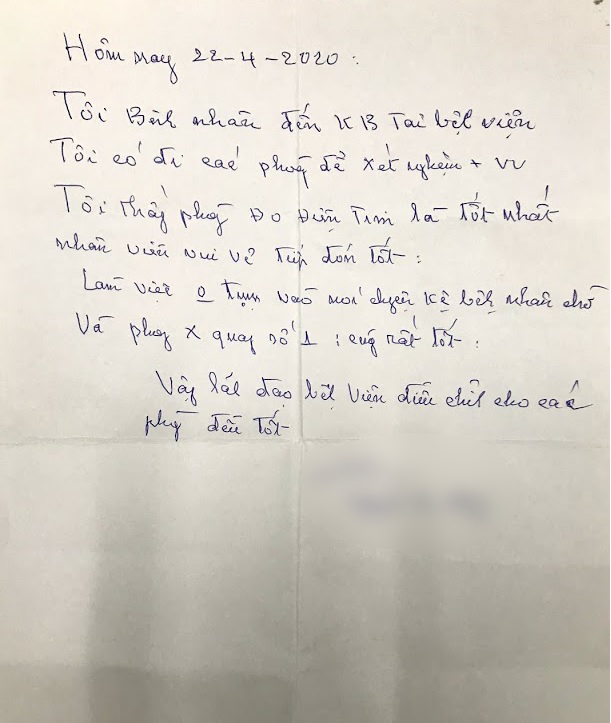 Hôm nay 22-4-2020:
Tôi Bệnh nhân đến KB Tại bệt viện
Tôi có đi các phòng để xét nghiệm + vv
Tôi thấy phòng Đo Điện Tim là tốt nhất
nhân viên vui vẻ tiếp đón tốt:
Làm việc 0 vào nói chuyện kệ bệnh nhân chờ
Và phòng X quang số 1 : cũng rất tốt:
Vậy đạo bệt Viện điều chỉ cho các
phg đều tốt-